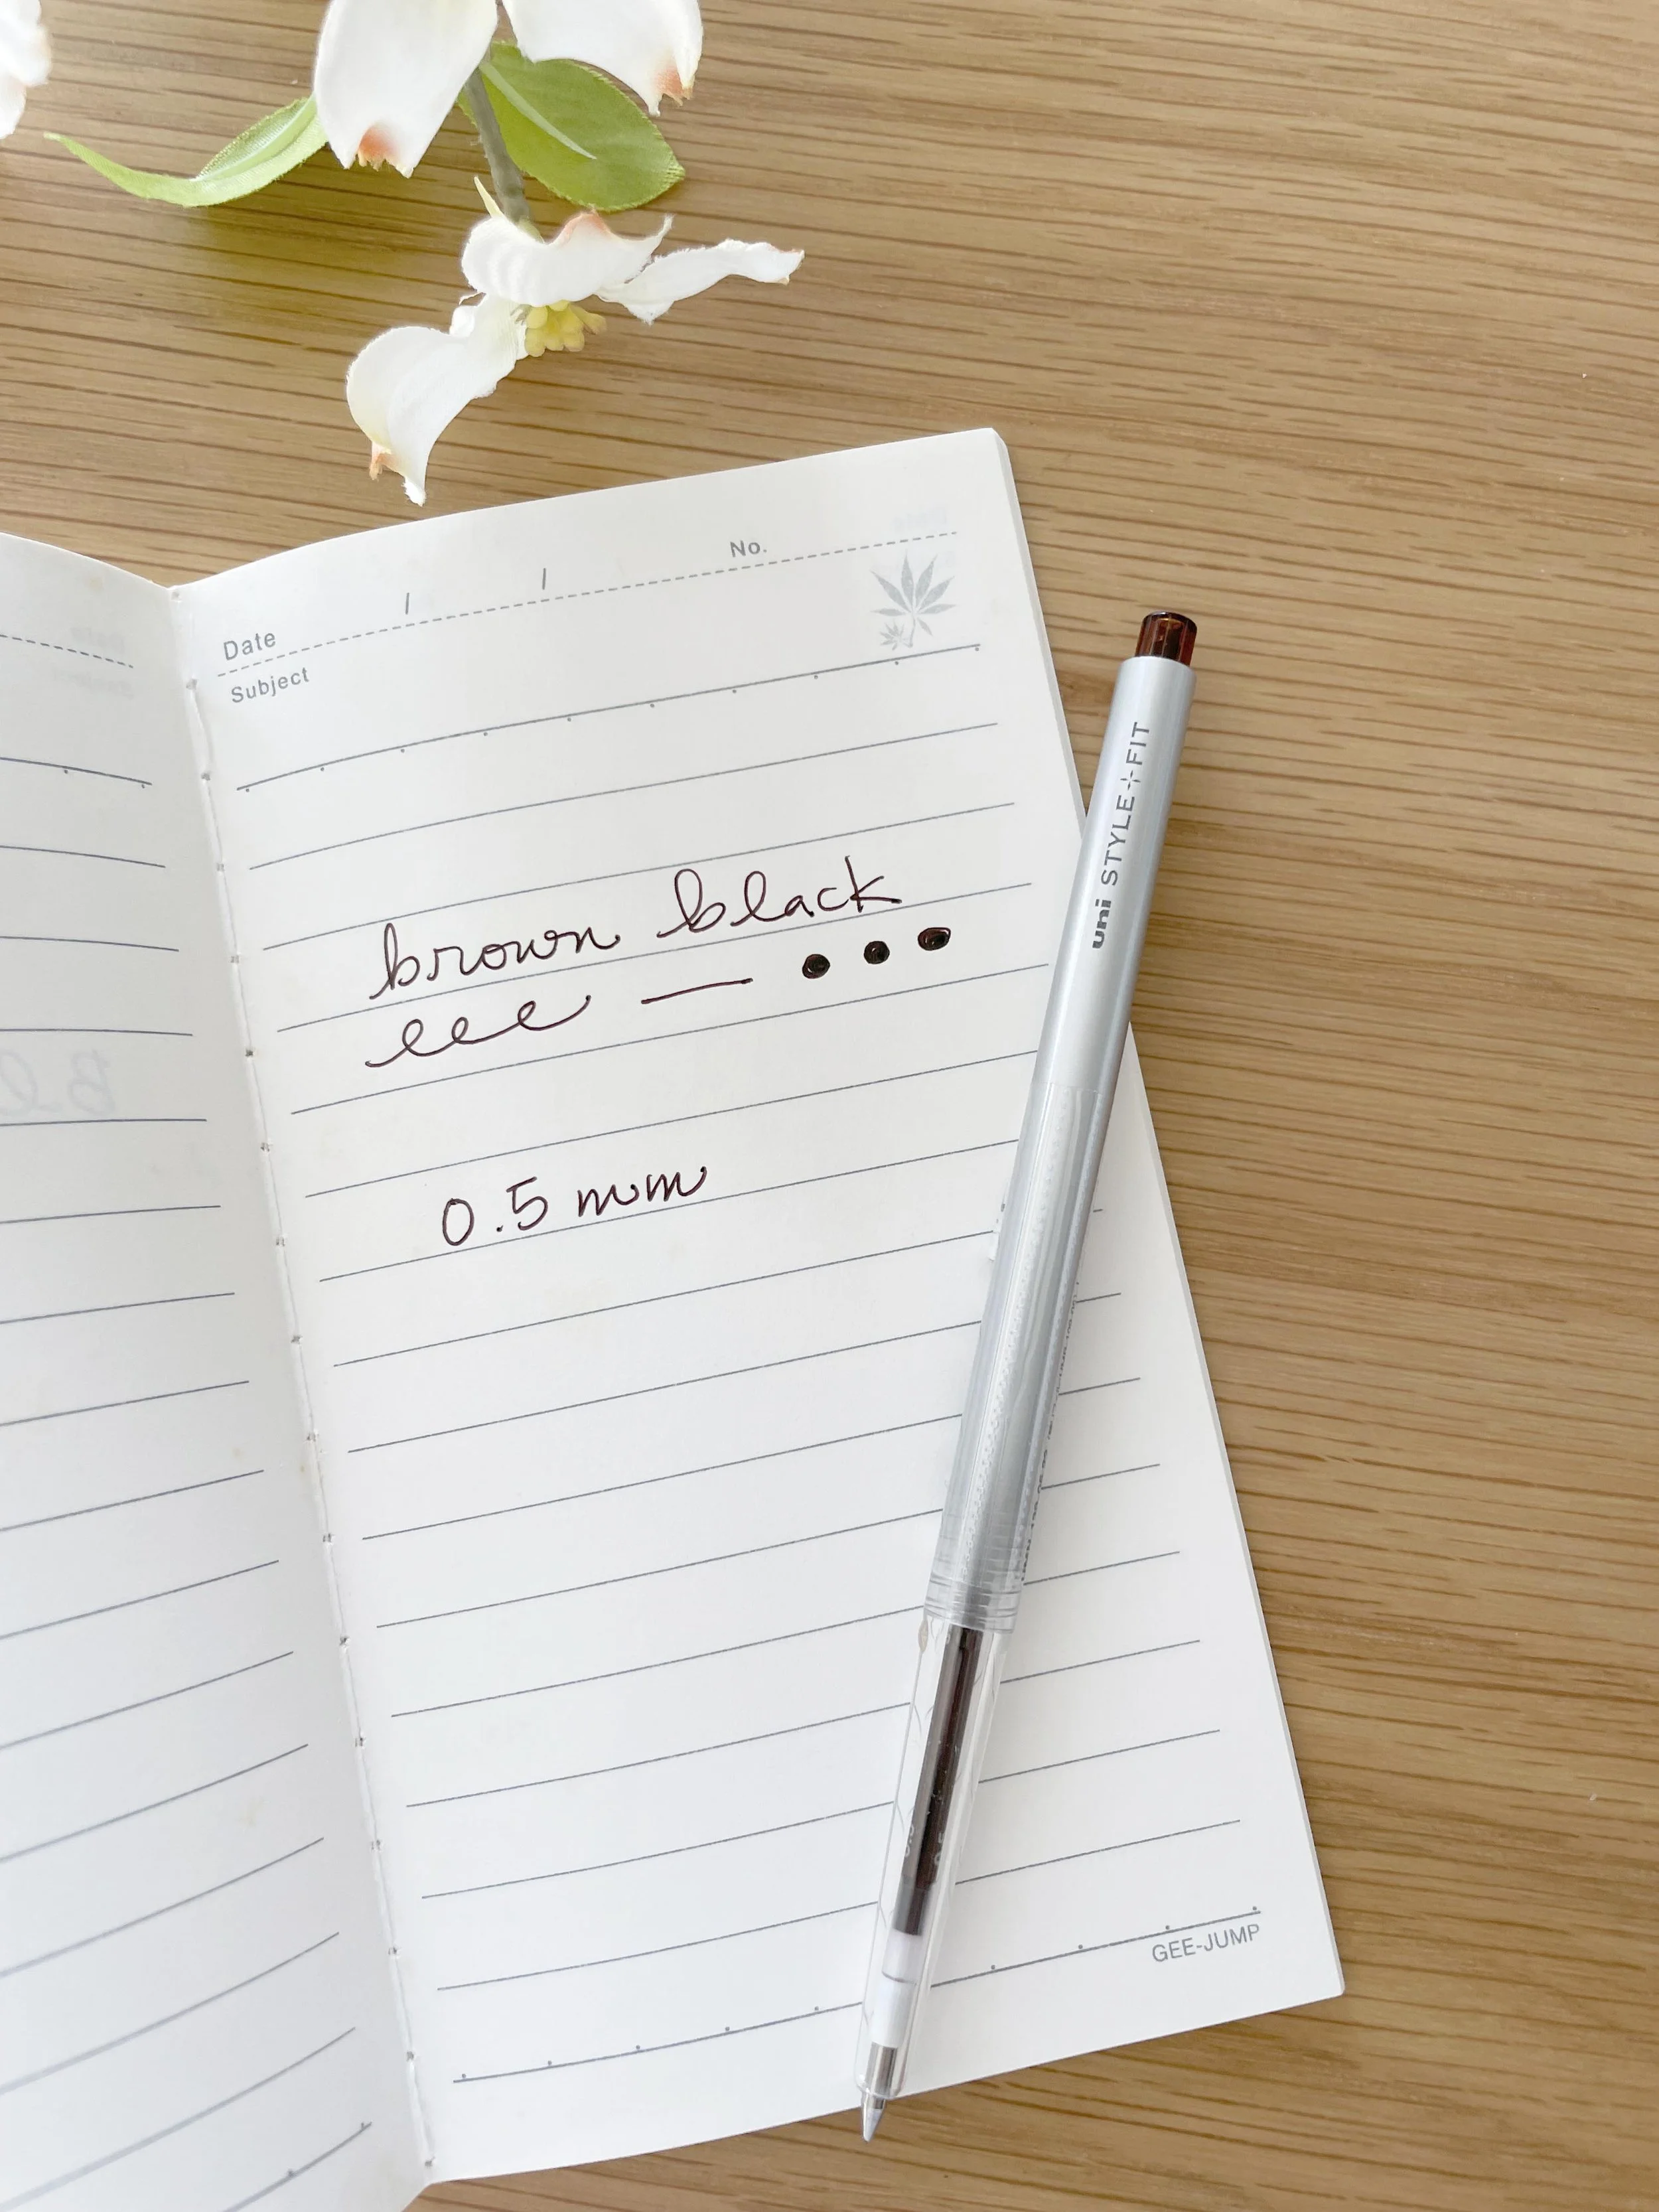 No.
/ /
Date
Subject
brown black
eee — • • •
0.5 mm
uni STYLE FIT
GEE-JUMP